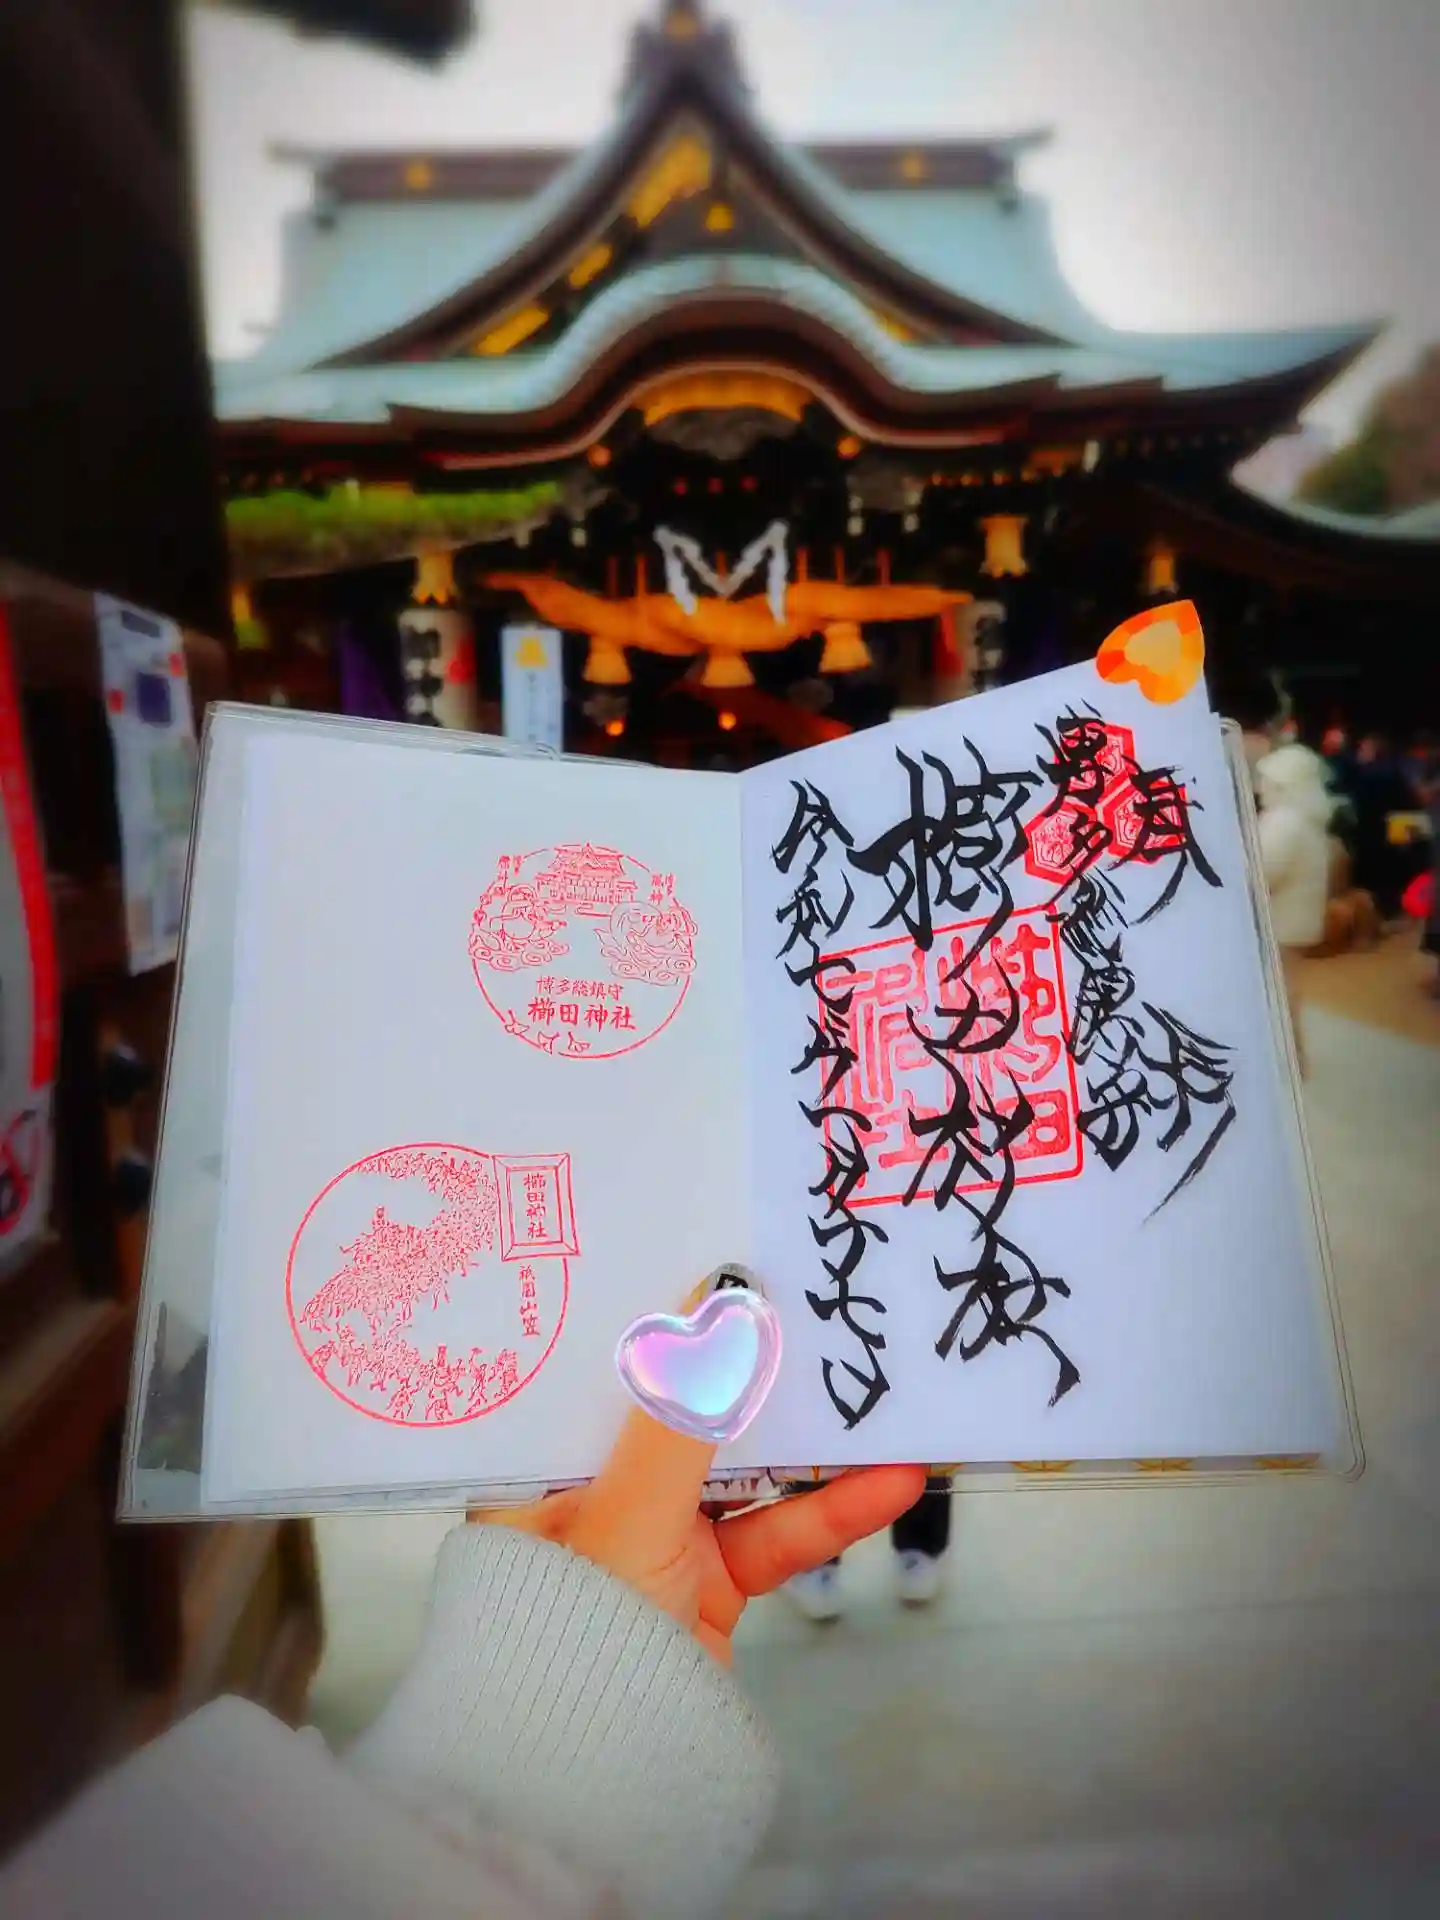 奉拝
博多総鎮守
櫛田神社
令和七年一月二十七日
櫛田神社
風神
博多総鎮守
櫛田神社
櫛田神社
祇園山笠